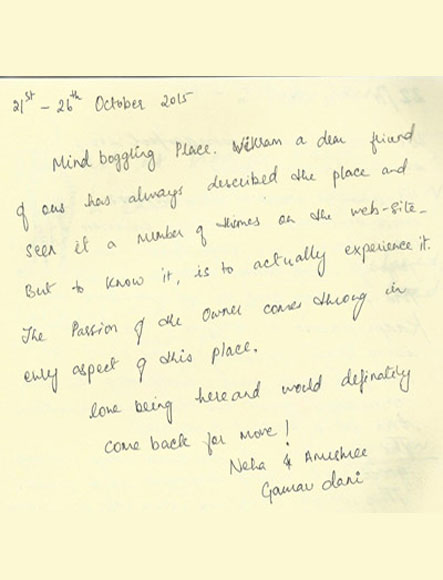 21st - 26th October 2015
Mind boggling Place. Vikram a dear friend
of ours has always described the place and
seen it a number of times on the web-site.
But to know it, is to actually experience it.
The Passion of the Owner comes throug in
every aspect of this place.
love being here and would definately
come back for more!
Neha & Anushree
Gaurav dani